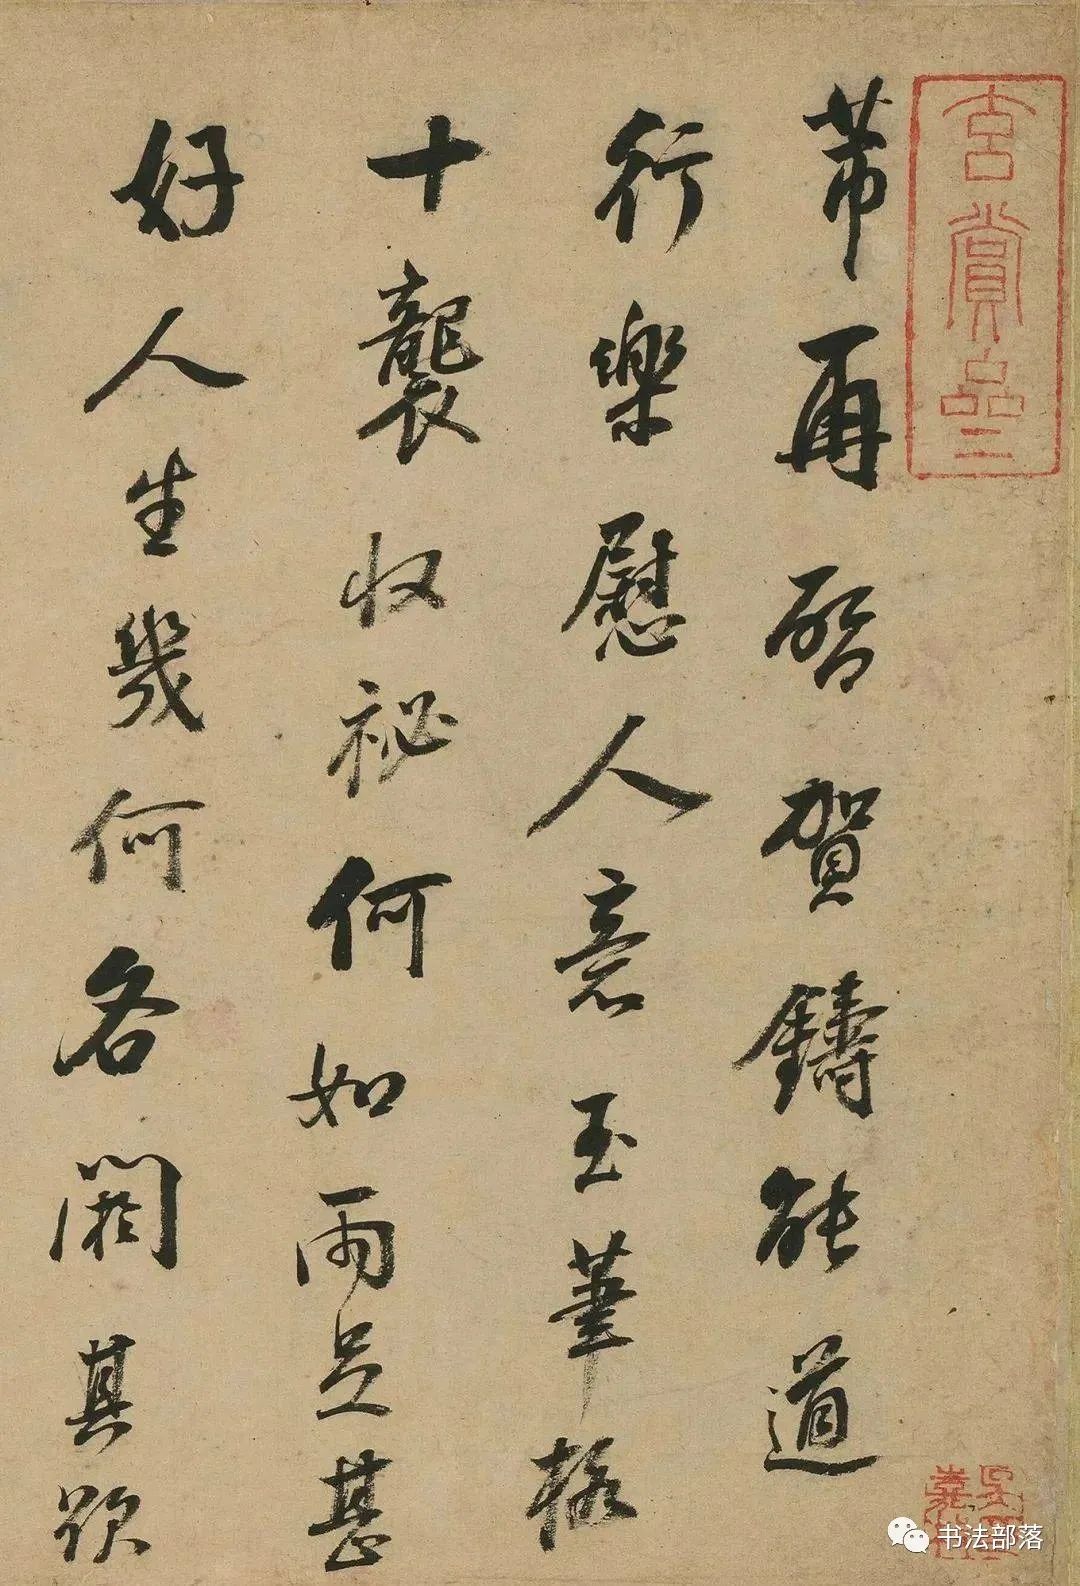 芾再啓賀鑄能道
行樂慰人意玉筆格
十襲收祕何如兩足甚
好人生幾何各閼其欲
賞品二
书法部落